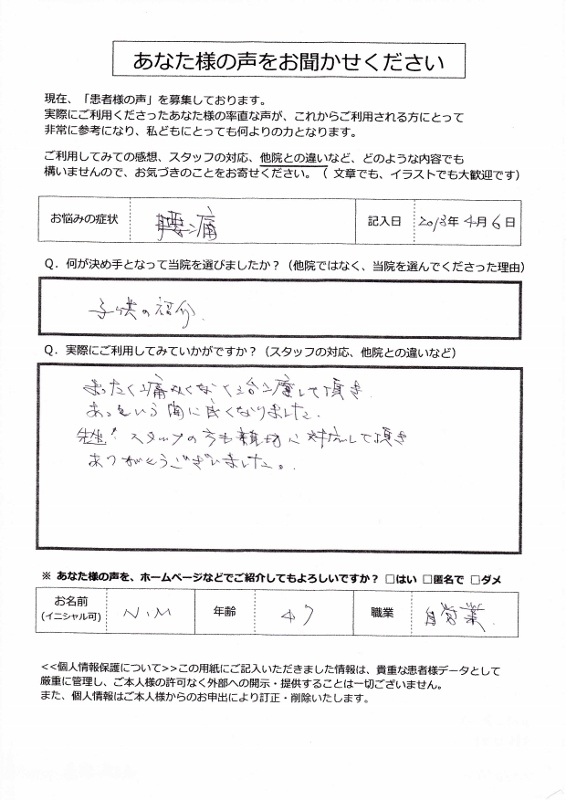 あなた様の声をお聞かせください
現在、「患者様の声」を募集しております。
実際にご利用くださったあなた様の率直な声が、これからご利用される方にとって
非常に参考になり、私どもにとっても何よりの力となります。
ご利用してみての感想、スタッフの対応、他院との違いなど、どのような内容でも
構いませんので、お気づきのことをお寄せください。（ 文章でも、イラストでも大歓迎です）
お悩みの症状 腰痛 記入日 2013年 4月 6日
Q．何が決め手となって当院を選びましたか？（他院ではなく、当院を選んでくださった理由）
子供の紹介.
Q．実際にご利用してみていかがですか？（スタッフの対応、他院との違いなど）
まったく痛みなく治療して頂き
あっという間に良くなりました.
先生! スタッフの方も親切に対応して頂き
ありがとうございました。
※ あなた様の声を、ホームページなどでご紹介してもよろしいですか？ □はい □匿名で □ダメ
お名前 N.M 年齢 47 職業 自営業.
(イニシャル可)
<<個人情報保護について>>この用紙にご記入いただきました情報は、貴重な患者様データとして
厳重に管理し、ご本人様の許可なく外部への開示・提供することは一切ございません。
また、個人情報はご本人様からのお申出により訂正・削除いたします。